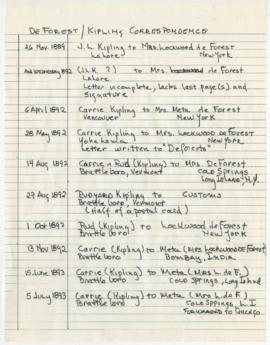 DE FOREST / KIPLING CORRESPONDENCE
26 Nov. 1889 J. L. Kipling to Mrs. Lockwood de Forest
Lahore New York
2nd Wednesday 1892 (JLK ?) to Mrs. de Forest
Lahore
Letter incomplete, lacks last page(s) and
signature
6 April 1892 Carrie Kipling to Mrs. Meta de Forest
Vancouver New York
28 May 1892 Carrie Kipling to Mrs. LOCKWOOD DE FOREST
Yokohama New York
Letter written to "DeForests"
14 Aug 1892 Carrie & Rud (Kipling) to Mrs. DE FOREST
Brattleboro, Vermont COLD SPRINGS
Long Island, N.Y.
27 Aug 1892 RUDYARD Kipling to CUSTOMS
Brattleboro, Vermont
(Half of a postal card)
1 Oct 1892 Rud (Kipling) to Lockwood DE FOREST
Brattleboro New York
13 Nov 1892 Carrie (Kipling) to Meta (MRS LOCKWOOD DE FOREST)
Brattleboro BOMBAY, INDIA
15 June 1893 Carrie (Kipling) to Meta (MRS L. de F.)
Brattleboro COLD SPRINGS, Long Island
5 July 1893 Carrie (Kipling) to Meta (Mrs L. de F.)
Brattleboro COLD SPRINGS, L.I
FORWARDED TO Chicago